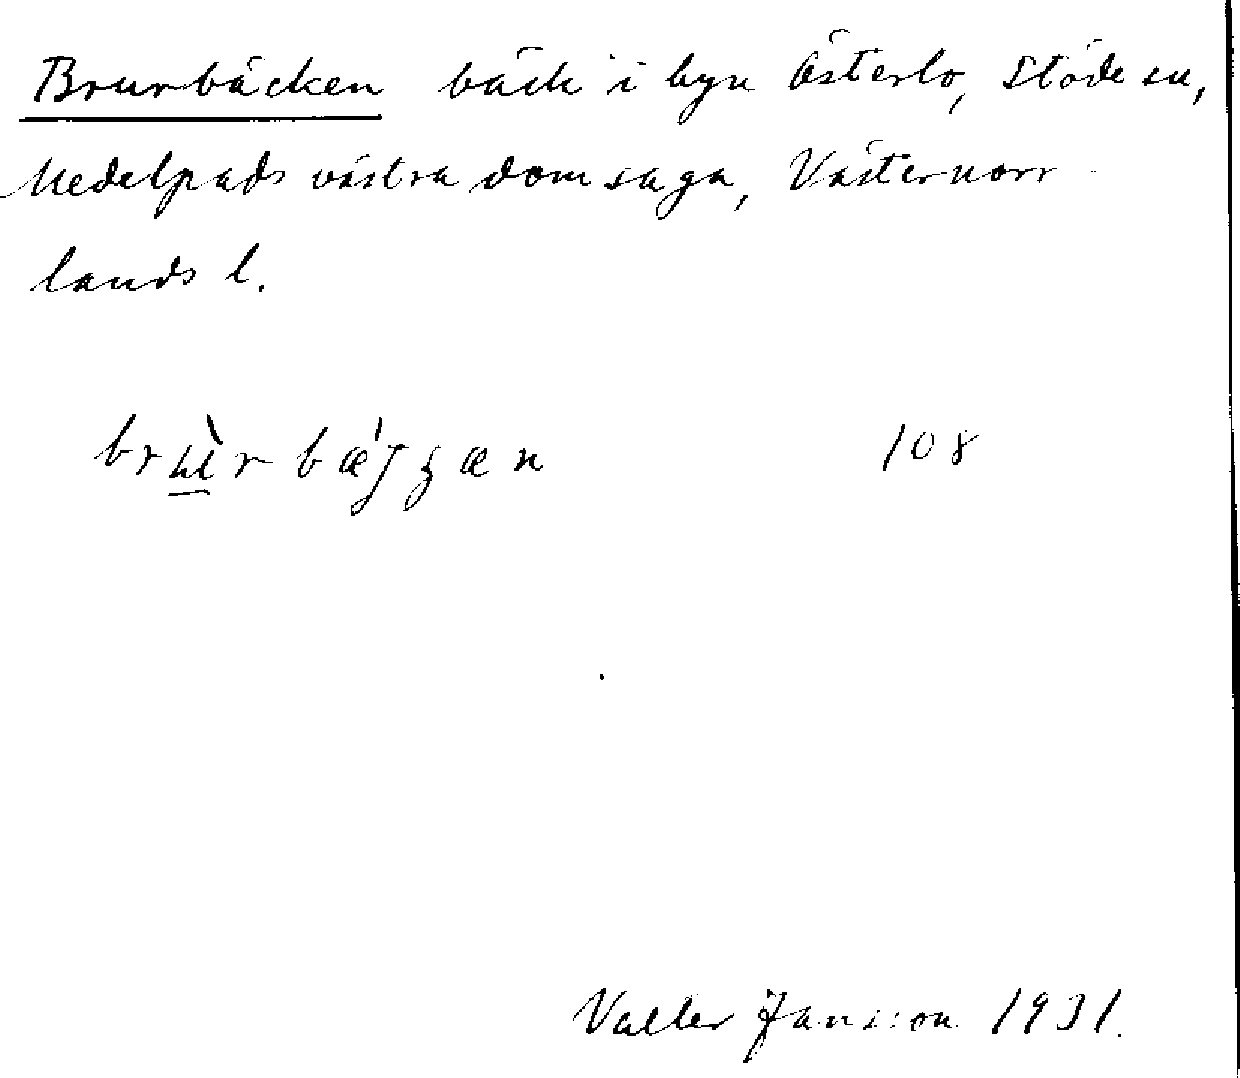 Brurbäcken bäck i byn Österlo, Stöde sn,
Medelpads västra domsaga, Västernorr-
lands l.
108
Valter Jansson 1931.